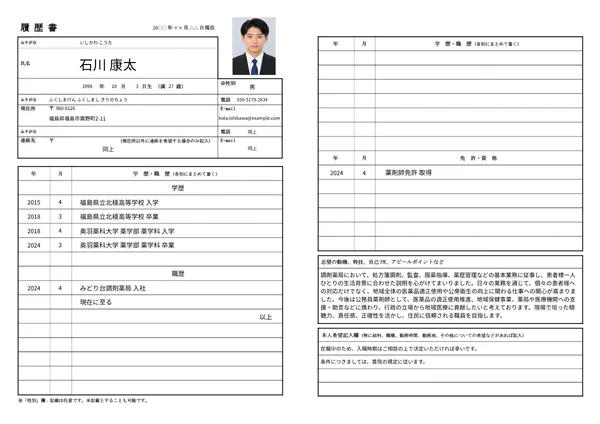 履歴書
20○○ 年 ×× 月 △△ 日現在
ふりがな いしかわ こうた
氏名 石川 康太
1998 年 10 月 3 日生 (満 27 歳)
※性別 男
ふりがな ふくしまけん ふくしまし さりのちょう
電話 030-5179-2634
現住所 〒 960-8126
E-mail
福島県福島市霞野町2-11
kota.ishikawa@example.com
ふりがな
電話 同上
連絡先 〒 (現住所以外に連絡を希望する場合のみ記入)
E-mail
同上
同上
年 月 学 歴・職 歴 (各別にまとめて書く)
学歴
2015 4 福島県立北稜高等学校 入学
2018 3 福島県立北稜高等学校 卒業
2018 4 奥羽薬科大学 薬学部 薬学科 入学
2024 3 奥羽薬科大学 薬学部 薬学科 卒業
職歴
2024 4 みどり台調剤薬局 入社
現在に至る
以上
※「性別」欄：記載は任意です。未記載とすることも可能です。
年 月 学 歴・職 歴 (各別にまとめて書く)
年 月 免 許・資 格
2024 4 薬剤師免許 取得
志望の動機、特技、自己PR、アピールポイントなど
調剤薬局において、処方箋調剤、監査、服薬指導、薬歴管理などの基本業務に従事し、患者様一人
ひとりの生活背景に合わせた説明を心がけてまいりました。日々の業務を通じて、個々の患者様へ
の対応だけでなく、地域全体の医薬品適正使用や公衆衛生の向上に関わる仕事への関心が高まりま
した。今後は公務員薬剤師として、医薬品の適正使用推進、地域保健事業、薬局や医療機関への支
援・助言などに携わり、行政の立場から地域医療に貢献したいと考えております。現場で培った傾
聴力、責任感、正確性を活かし、住民に信頼される職員を目指します。
本人希望記入欄 (特に給料、職種、勤務時間、勤務地、その他についての希望などがあれば記入)
在職中のため、入職時期はご相談の上で決定いただければ幸いです。
条件につきましては、貴院の規定に従います。